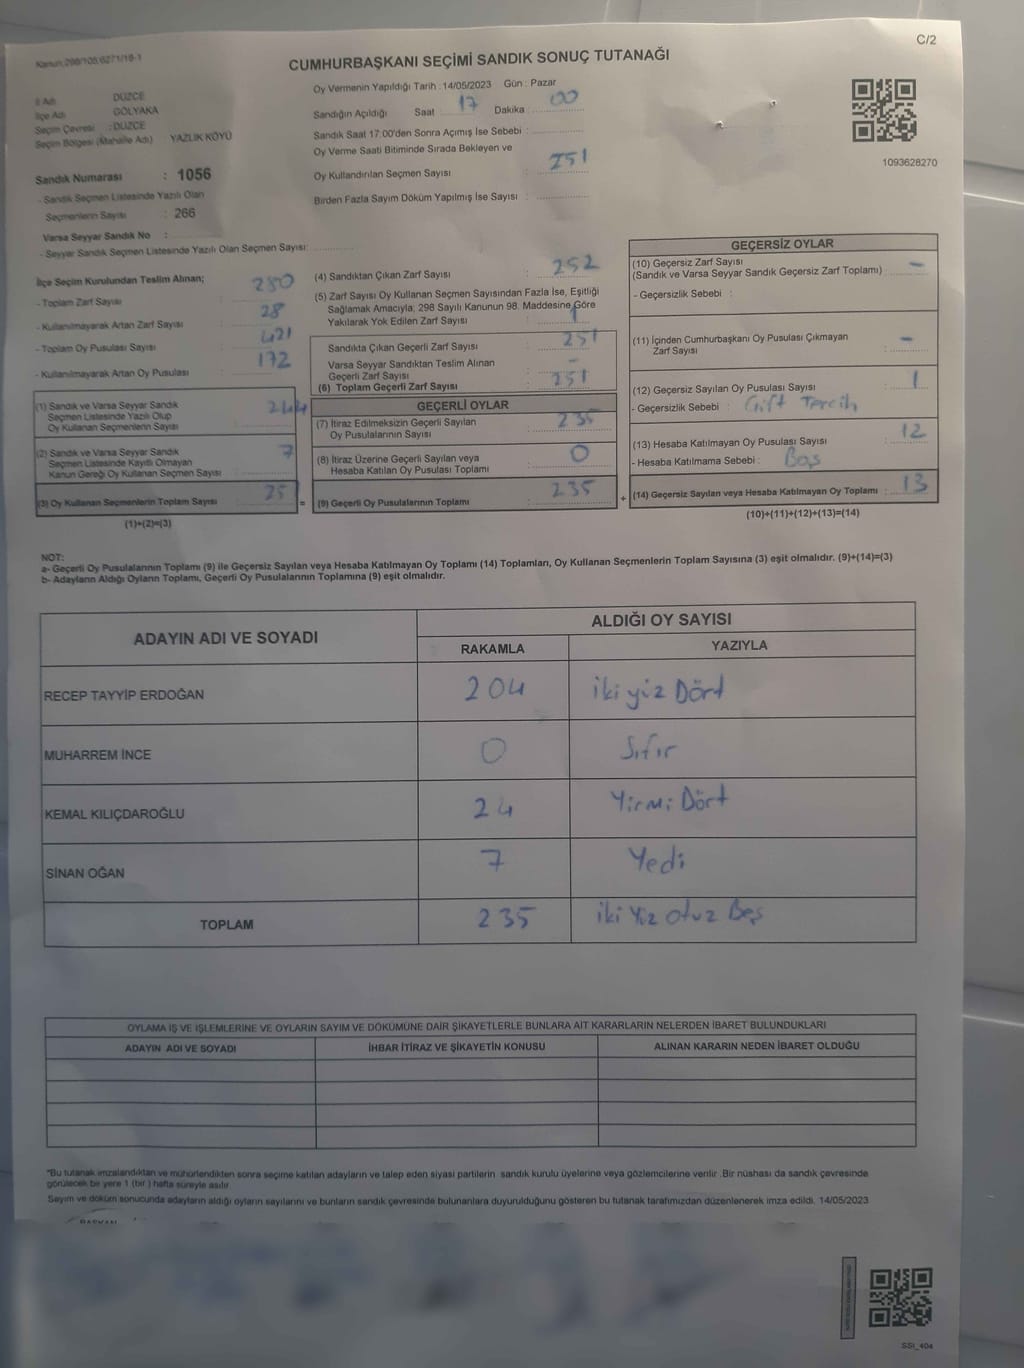 C/2
Kanun:298/105,6271/18-1
CUMHURBAŞKANI SEÇİMİ SANDIK SONUÇ TUTANAĞI
Oy Vermenin Yapıldığı Tarih : 14/05/2023 Gün : Pazar
İl Adı : DÜZCE
İlçe Adı : GÖLYAKA
Seçim Çevresi : DÜZCE
Seçim Bölgesi (Mahalle Adı) YAZLIK KÖYÜ
Sandığın Açıldığı Saat : 17 Dakika : 00
Sandık Saat 17:00'den Sonra Açımış İse Sebebi :
Oy Verme Saati Bitiminde Sırada Bekleyen ve
Oy Kullandırılan Seçmen Sayısı : 251
Birden Fazla Sayım Döküm Yapılmış İse Sayısı :
1093628270
Sandık Numarası : 1056
- Sandık Seçmen Listesinde Yazılı Olan
Seçmenlerin Sayısı : 266
Varsa Seyyar Sandık No :
- Seyyar Sandık Seçmen Listesinde Yazılı Olan Seçmen Sayısı:
İlçe Seçim Kurulundan Teslim Alınan;
- Toplam Zarf Sayısı : 280
- Kullanılmayarak Artan Zarf Sayısı : 28
- Toplam Oy Pusulası Sayısı : 421
- Kullanılmayarak Artan Oy Pusulası : 172
(1) Sandık ve Varsa Seyyar Sandık
Seçmen Listesinde Yazılı Olup
Oy Kullanan Seçmenlerin Sayısı : 244
(2) Sandık ve Varsa Seyyar Sandık
Seçmen Listesinde Kayıtlı Olmayan
Kanun Gereği Oy Kullanan Seçmen Sayısı : 7
(3) Oy Kullanan Seçmenlerin Toplam Sayısı : 251
(1)+(2)=(3)
(4) Sandıktan Çıkan Zarf Sayısı : 252
(5) Zarf Sayısı Oy Kullanan Seçmen Sayısından Fazla İse, Eşitliği
Sağlamak Amacıyla; 298 Sayılı Kanunun 98. Maddesine Göre
Yakılarak Yok Edilen Zarf Sayısı : 1
Sandıkta Çıkan Geçerli Zarf Sayısı : 251
Varsa Seyyar Sandıktan Teslim Alınan
Geçerli Zarf Sayısı : -
(6) Toplam Geçerli Zarf Sayısı : 251
GEÇERLİ OYLAR
(7) İtiraz Edilmeksizin Geçerli Sayılan
Oy Pusulalarının Sayısı : 235
(8) İtiraz Üzerine Geçerli Sayılan veya
Hesaba Katılan Oy Pusulası Toplamı : 0
= (9) Geçerli Oy Pusulalarının Toplamı : 235 +
GEÇERSİZ OYLAR
(10) Geçersiz Zarf Sayısı
(Sandık ve Varsa Seyyar Sandık Geçersiz Zarf Toplamı) : -
- Geçersizlik Sebebi :
(11) İçinden Cumhurbaşkanı Oy Pusulası Çıkmayan
Zarf Sayısı : -
(12) Geçersiz Sayılan Oy Pusulası Sayısı : 1
- Geçersizlik Sebebi : Çift Tercih
(13) Hesaba Katılmayan Oy Pusulası Sayısı : 12
- Hesaba Katılmama Sebebi : Boş
(14) Geçersiz Sayılan veya Hesaba Katılmayan Oy Toplamı : 13
(10)+(11)+(12)+(13)=(14)
NOT:
a- Geçerli Oy Pusulalarının Toplamı (9) ile Geçersiz Sayılan veya Hesaba Katılmayan Oy Toplamı (14) Toplamları, Oy Kullanan Seçmenlerin Toplam Sayısına (3) eşit olmalıdır. (9)+(14)=(3)
b- Adayların Aldığı Oyların Toplamı, Geçerli Oy Pusulalarının Toplamına (9) eşit olmalıdır.
ADAYIN ADI VE SOYADI
ALDIĞI OY SAYISI
RAKAMLA YAZIYLA
RECEP TAYYİP ERDOĞAN 204 iki yüz Dört
MUHARREM İNCE 0 Sıfır
KEMAL KILIÇDAROĞLU 24 Yirmi Dört
SİNAN OĞAN 7 Yedi
TOPLAM 235 iki Yüz otuz Beş
OYLAMA İŞ VE İŞLEMLERİNE VE OYLARIN SAYIM VE DÖKÜMÜNE DAİR ŞİKAYETLERLE BUNLARA AİT KARARLARIN NELERDEN İBARET BULUNDUKLARI
ADAYIN ADI VE SOYADI İHBAR İTİRAZ VE ŞİKAYETİN KONUSU ALINAN KARARIN NEDEN İBARET OLDUĞU
"Bu tutanak imzalandıktan ve mühürlendikten sonra seçime katılan adayların ve talep eden siyasi partilerin sandık kurulu üyelerine veya gözlemcilerine verilir .Bir nüshası da sandık çevresinde
görülecek bir yere 1 (bir ) hafta süreyle asılır.
Sayım ve döküm sonucunda adayların aldığı oyların sayılarını ve bunların sandık çevresinde bulunanlara duyurulduğunu gösteren bu tutanak tarafımızdan düzenlenerek imza edildi. 14/05/2023
BAŞKAN
SSİ_404